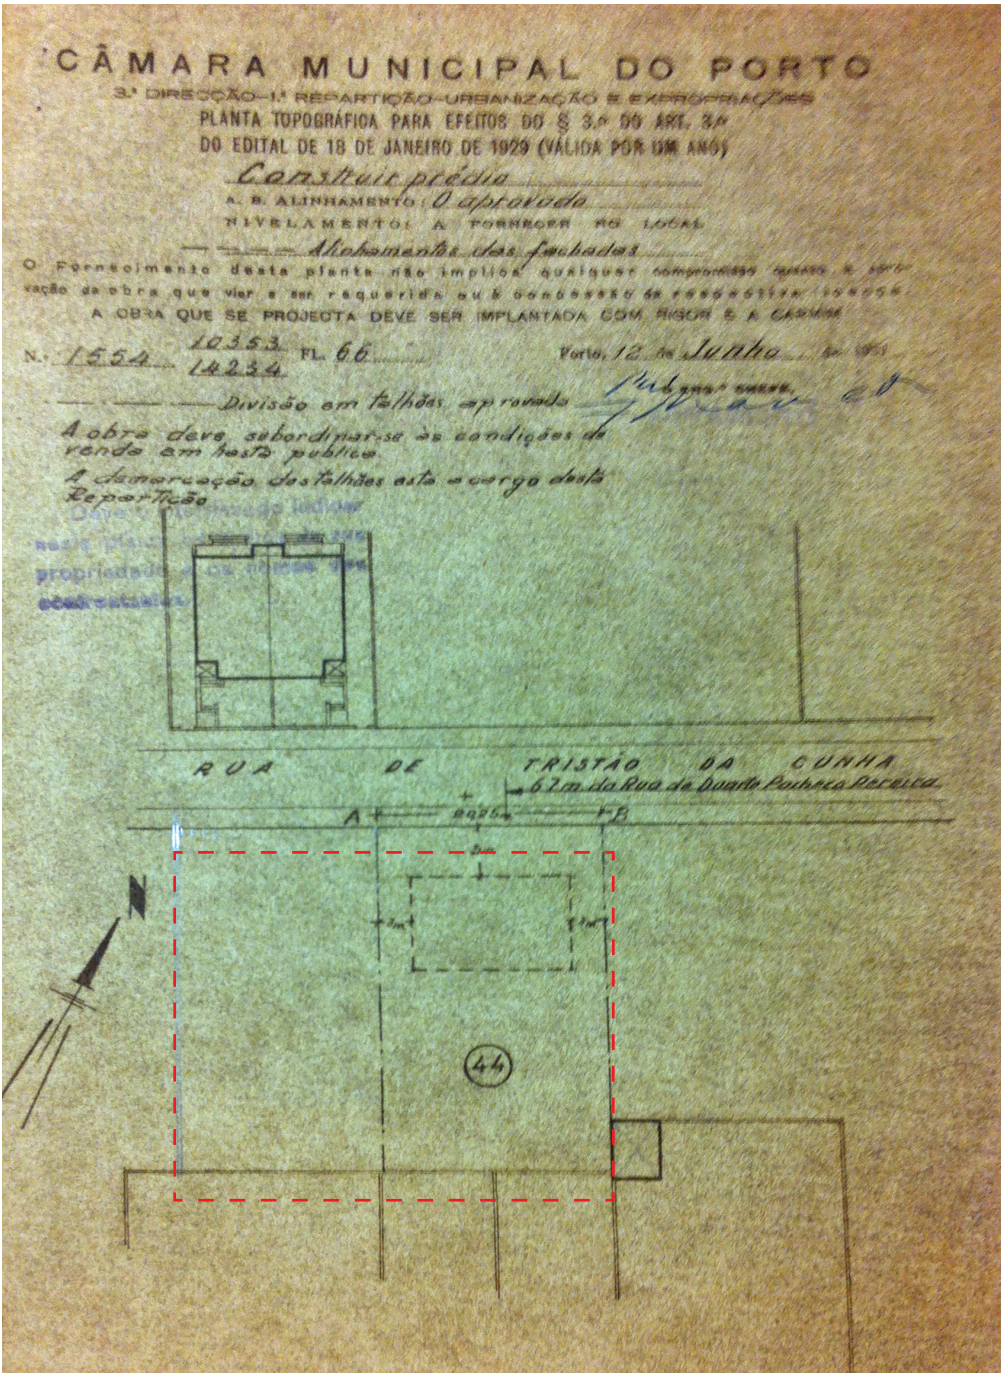 CÂMARA MUNICIPAL DO PORTO
3.ª DIRECÇÃO-1.ª REPARTIÇÃO-URBANIZAÇÃO E EXPROPRIAÇÕES
PLANTA TOPOGRÁFICA PARA EFEITOS DO § 3.º DO ART. 3.º
DO EDITAL DE 18 DE JANEIRO DE 1929 (VÁLIDA POR UM ANO)
Construir prédio
A. B. ALINHAMENTO: O aprovado
NIVELAMENTO: A FORNECER NO LOCAL
Alinhamentos das fachadas
O Fornecimento desta planta não implica qualquer compromisso quanto à apro-
vação da obra que vier a ser requerida ou à concessão da respectiva licença.
A OBRA QUE SE PROJECTA DEVE SER IMPLANTADA COM RIGOR E A CARMIM
N.º 1554 10353 FL. 66 Porto, 12 de Junho de
14234
Divisão em talhões aprovada
A obra deve subordinar-se às condições de
venda em hasta publica
A demarcação dos talhões está a cargo desta
Repartição
Deve o interessado indicar
nesta planta os limites da sua
propriedade e os nomes dos
confrontantes.
RUA DE TRISTÃO DA CUNHA
67m. da Rua de Duarte Pacheco Pereira
A B
N
44